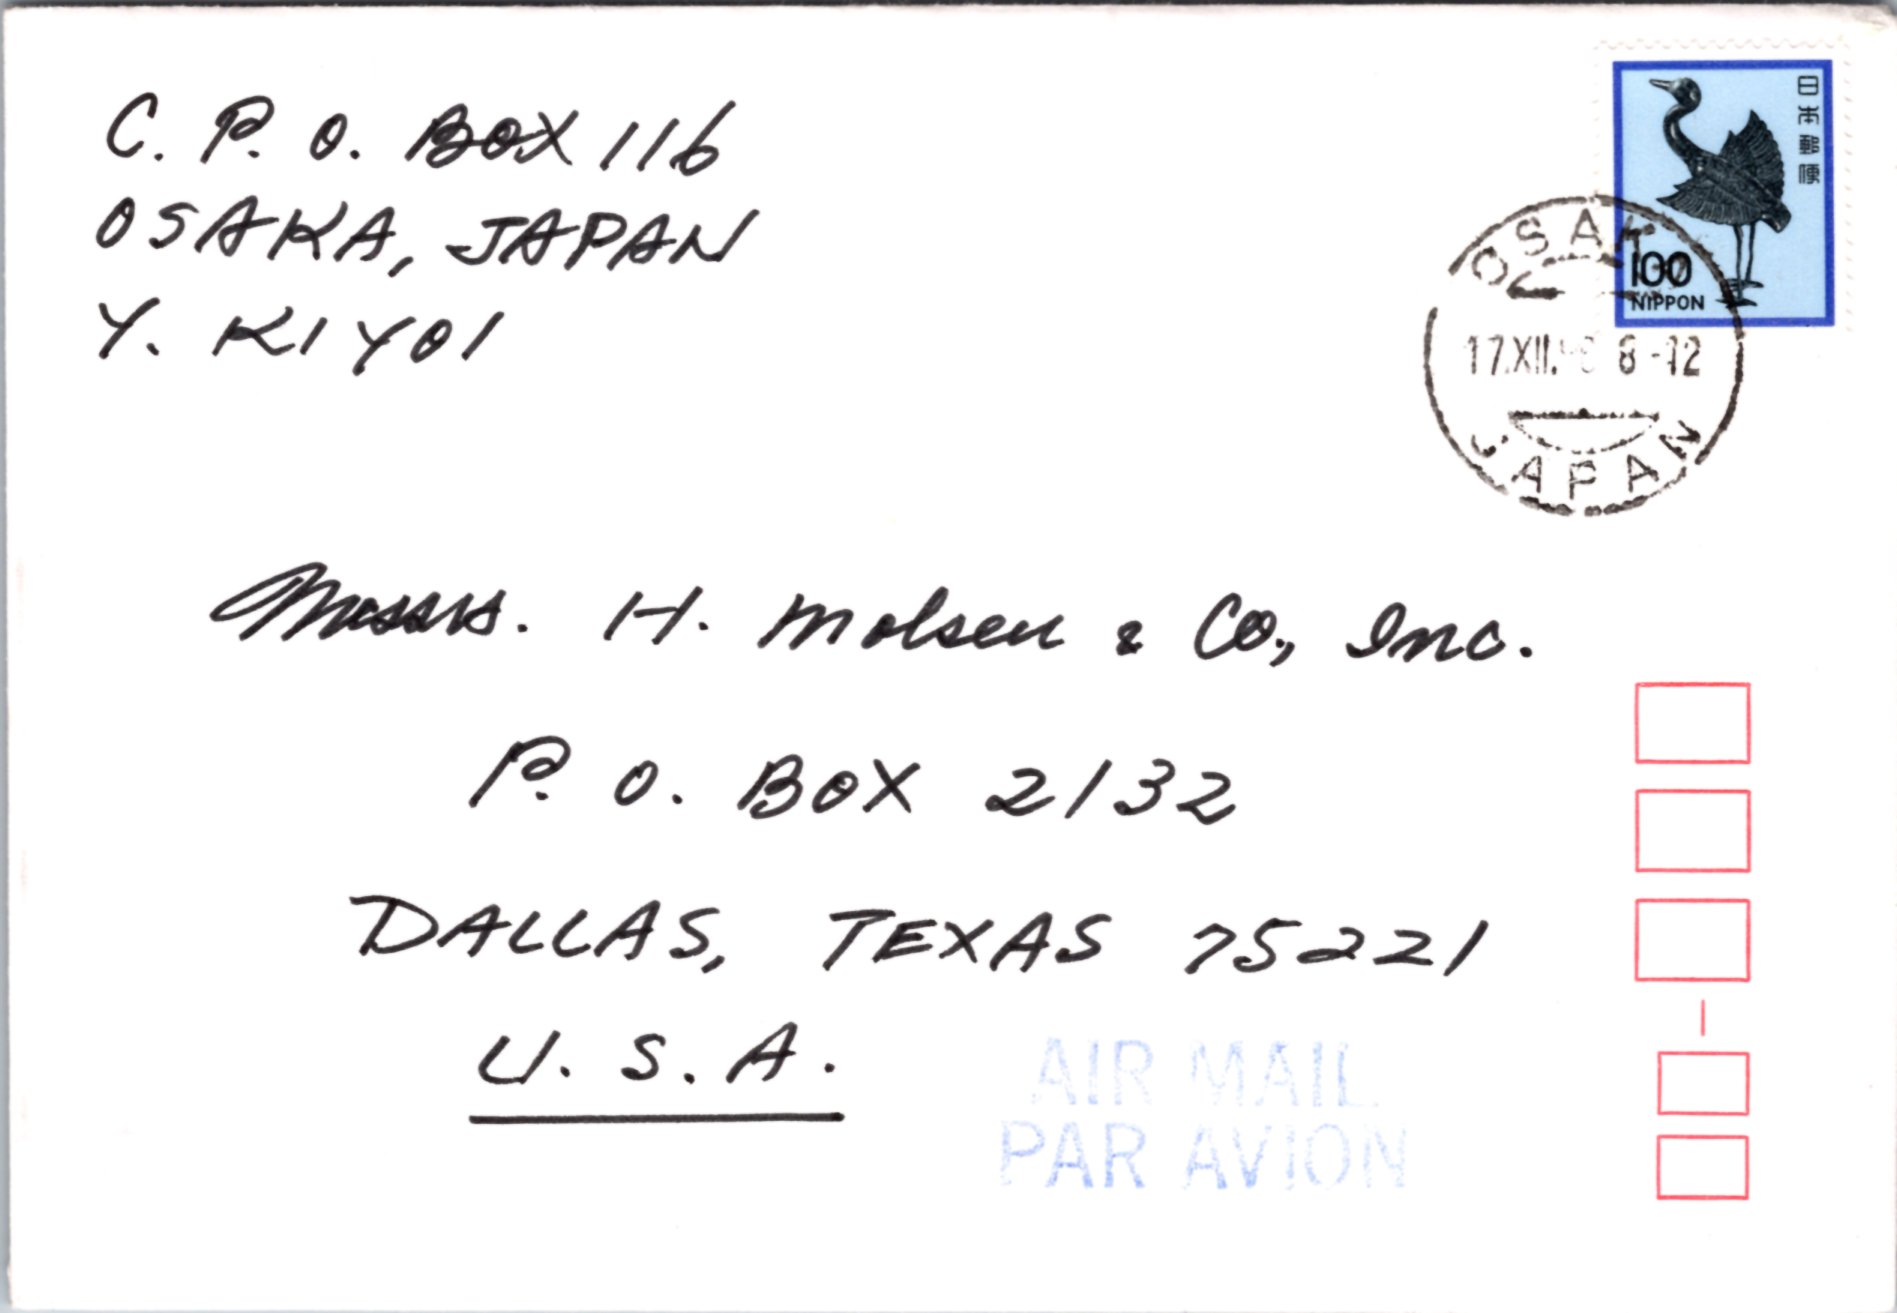 C. P. O. BOX 116
OSAKA, JAPAN
Y. KIYOI
日本郵便
100
NIPPON
OSAKA
17.XII. 8-12
JAPAN
Messrs. H. Molsen & Co., Inc.
P. O. BOX 2132
DALLAS, TEXAS 75221
U. S. A.
AIR MAIL
PAR AVION